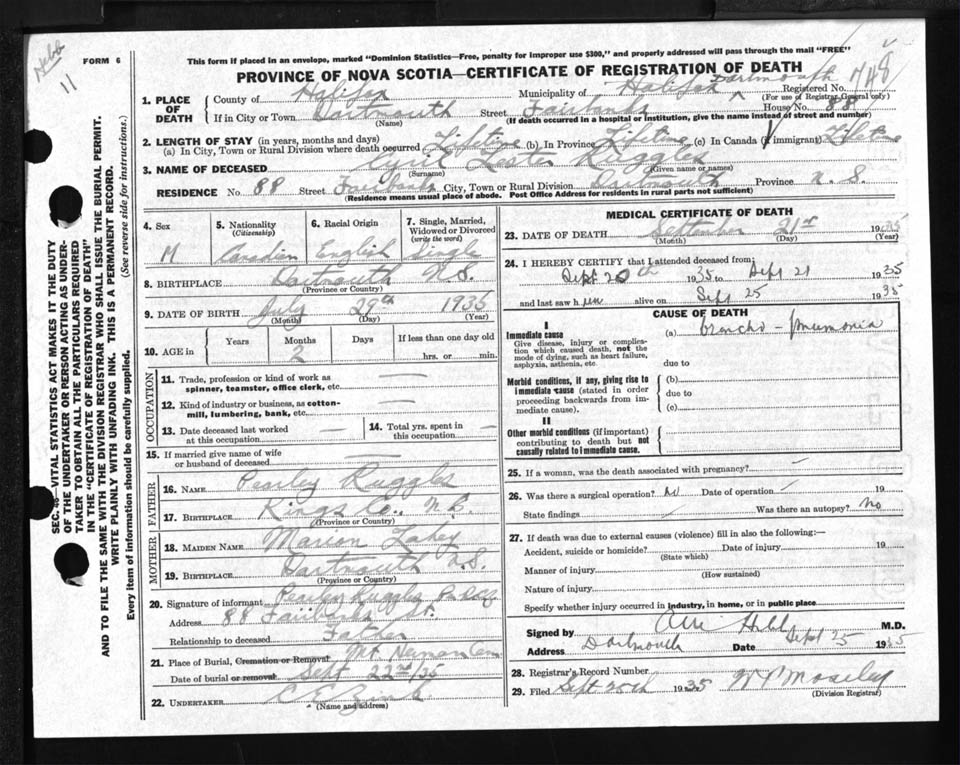 Webb
11
FORM 6
This form if placed in an envelope, marked "Dominion Statistics—Free, penalty for improper use $300," and properly addressed will pass through the mail "FREE"
PROVINCE OF NOVA SCOTIA—CERTIFICATE OF REGISTRATION OF DEATH
748
1. PLACE OF DEATH
County of Halifax Municipality of Halifax Dartmouth Registered No.
(For use of Registrar General only)
If in City or Town Dartmouth Street Fairbanks House No. 88
(Name) (If death occurred in a hospital or institution, give the name instead of street and number)
2. LENGTH OF STAY (in years, months and days)
(a) In City, Town or Rural Division where death occurred Lifetime (b). In Province Lifetime (c) In Canada (if immigrant) Lifetime
3. NAME OF DECEASED Cyril Lester Ruggles
(Surname) (Given name or names)
RESIDENCE No. 88 Street Fairbanks City, Town or Rural Division Dartmouth Province N. S.
(Residence means usual place of abode. Post Office Address for residents in rural parts not sufficient)
4. Sex
M
5. Nationality
(Citizenship)
Canadian
6. Racial Origin
English
7. Single, Married, Widowed or Divorced
(write the word)
Single
8. BIRTHPLACE Dartmouth N.S.
(Province or Country)
9. DATE OF BIRTH July 29th 1935
(Month) (Day) (Year)
10. AGE in
Years Months Days If less than one day old
2 hrs. or min.
OCCUPATION
11. Trade, profession or kind of work as spinner, teamster, office clerk, etc. —
12. Kind of industry or business, as cotton-mill, lumbering, bank, etc. —
13. Date deceased last worked at this occupation —
14. Total yrs. spent in this occupation —
15. If married give name of wife or husband of deceased —
FATHER
16. NAME Pearley Ruggles
17. BIRTHPLACE Kings Co., N.S.
(Province or Country)
MOTHER
18. MAIDEN NAME Marion Lahey
19. BIRTHPLACE Dartmouth N.S.
(Province or Country)
20. Signature of informant Pearley Ruggles
Address 88 Fairbanks St.
Relationship to deceased Father
21. Place of Burial, Cremation or Removal Mt Herman Cem
Date of burial or removal Sept 22nd/35
22. UNDERTAKER
(Name and address)
MEDICAL CERTIFICATE OF DEATH
23. DATE OF DEATH September 21st 1935
(Month) (Day) (Year)
24. I HEREBY CERTIFY that I attended deceased from:
Sept 20th 1935 to Sept 21 1935
and last saw him alive on Sept 25 1935
CAUSE OF DEATH
I
Immediate cause
Give disease, injury or complication which caused death, not the mode of dying, such as heart failure, asphyxia, asthenia, etc.
(a) broncho-pneumonia
due to
Morbid conditions, if any, giving rise to immediate cause (stated in order proceeding backwards from immediate cause).
(b)
due to
(c)
II
Other morbid conditions (if important) contributing to death but not causally related to immediate cause.
25. If a woman, was the death associated with pregnancy? —
26. Was there a surgical operation? No Date of operation 19
State findings Was there an autopsy? No
27. If death was due to external causes (violence) fill in also the following:—
Accident, suicide or homicide? Date of injury 19
(State which)
Manner of injury
(How sustained)
Nature of injury
Specify whether injury occurred in industry, in home, or in public place
Signed by M.D.
Address Dartmouth Date Sept 25 1935
28. Registrar's Record Number
29. Filed Sept 25th 1935 W P Moseley
(Division Registrar)
SEC. 48 VITAL STATISTICS ACT MAKES IT THE DUTY
OF THE UNDERTAKER OR PERSON ACTING AS UNDER-
TAKER TO OBTAIN ALL THE PARTICULARS REQUIRED
IN THE "CERTIFICATE OF REGISTRATION OF DEATH"
AND TO FILE THE SAME WITH THE DIVISION REGISTRAR WHO SHALL ISSUE THE BURIAL PERMIT.
WRITE PLAINLY WITH UNFADING INK. THIS IS A PERMANENT RECORD.
Every item of information should be carefully supplied. (See reverse side for instructions.)